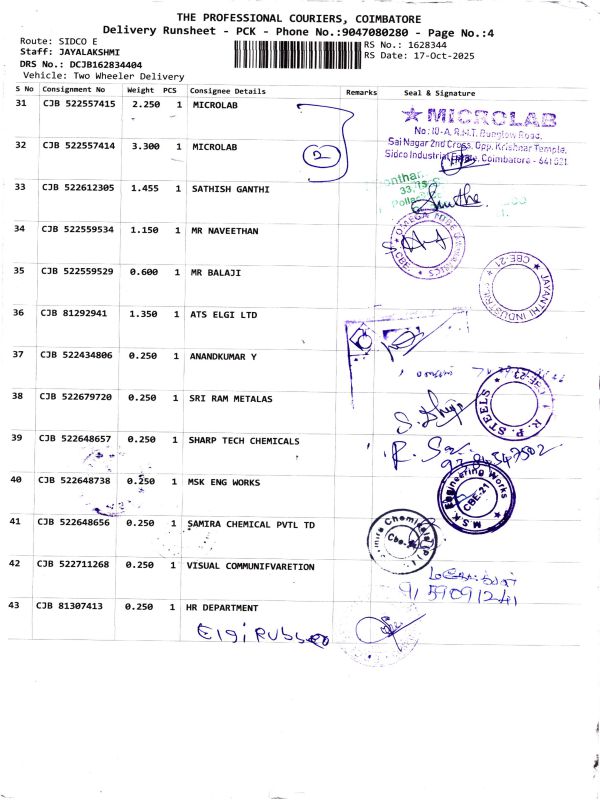 THE PROFESSIONAL COURIERS, COIMBATORE
Delivery Runsheet - PCK - Phone No.:9047080280 - Page No.:4
Route: SIDCO E
Staff: JAYALAKSHMI
DRS No.: DCJB162834404
Vehicle: Two Wheeler Delivery
RS No.: 1628344
RS Date: 17-Oct-2025
S No Consignment No Weight PCS Consignee Details Remarks Seal & Signature
31 CJB 522557415 2.250 1 MICROLAB
★ MICROLAB
Sai Nagar 2nd Cross, Opp. Krishnar Temple,
32 CJB 522557414 3.300 1 MICROLAB 2
33 CJB 522612305 1.455 1 SATHISH GANTHI
34 CJB 522559534 1.150 1 MR NAVEETHAN
35 CJB 522559529 0.600 1 MR BALAJI
JAYANTHI INDUSTRIES CBE-21
36 CJB 81292941 1.350 1 ATS ELGI LTD
37 CJB 522434806 0.250 1 ANANDKUMAR Y
38 CJB 522679720 0.250 1 SRI RAM METALAS
R.P. STEELS
39 CJB 522648657 0.250 1 SHARP TECH CHEMICALS
40 CJB 522648738 0.250 1 MSK ENG WORKS
M.S.K Engineering Works CBE-21
41 CJB 522648656 0.250 1 SAMIRA CHEMICAL PVTL TD
42 CJB 522711268 0.250 1 VISUAL COMMUNIFVARETION
43 CJB 81307413 0.250 1 HR DEPARTMENT
Elgi Rubber